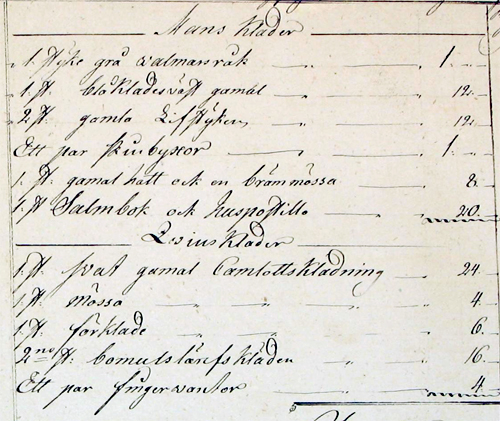 Mans Kläder
1. styke grå valmarsråk 1.
1. st. blå kladesväst gamal 12.
2. st. gamla Lifstyken 12.
Ett par skinbyxor 1.
1. st. gamal hatt ock en brämmössa 8.
1. st Salmbok ock huspostilla 20.
Kläder
1. st. svat gamal Camlottsklädning 24.
1. st. mössa 4.
1. st. förkläde 6.
2 no st. bomulslärfskläden 16.
Ett par fingervantor 4.